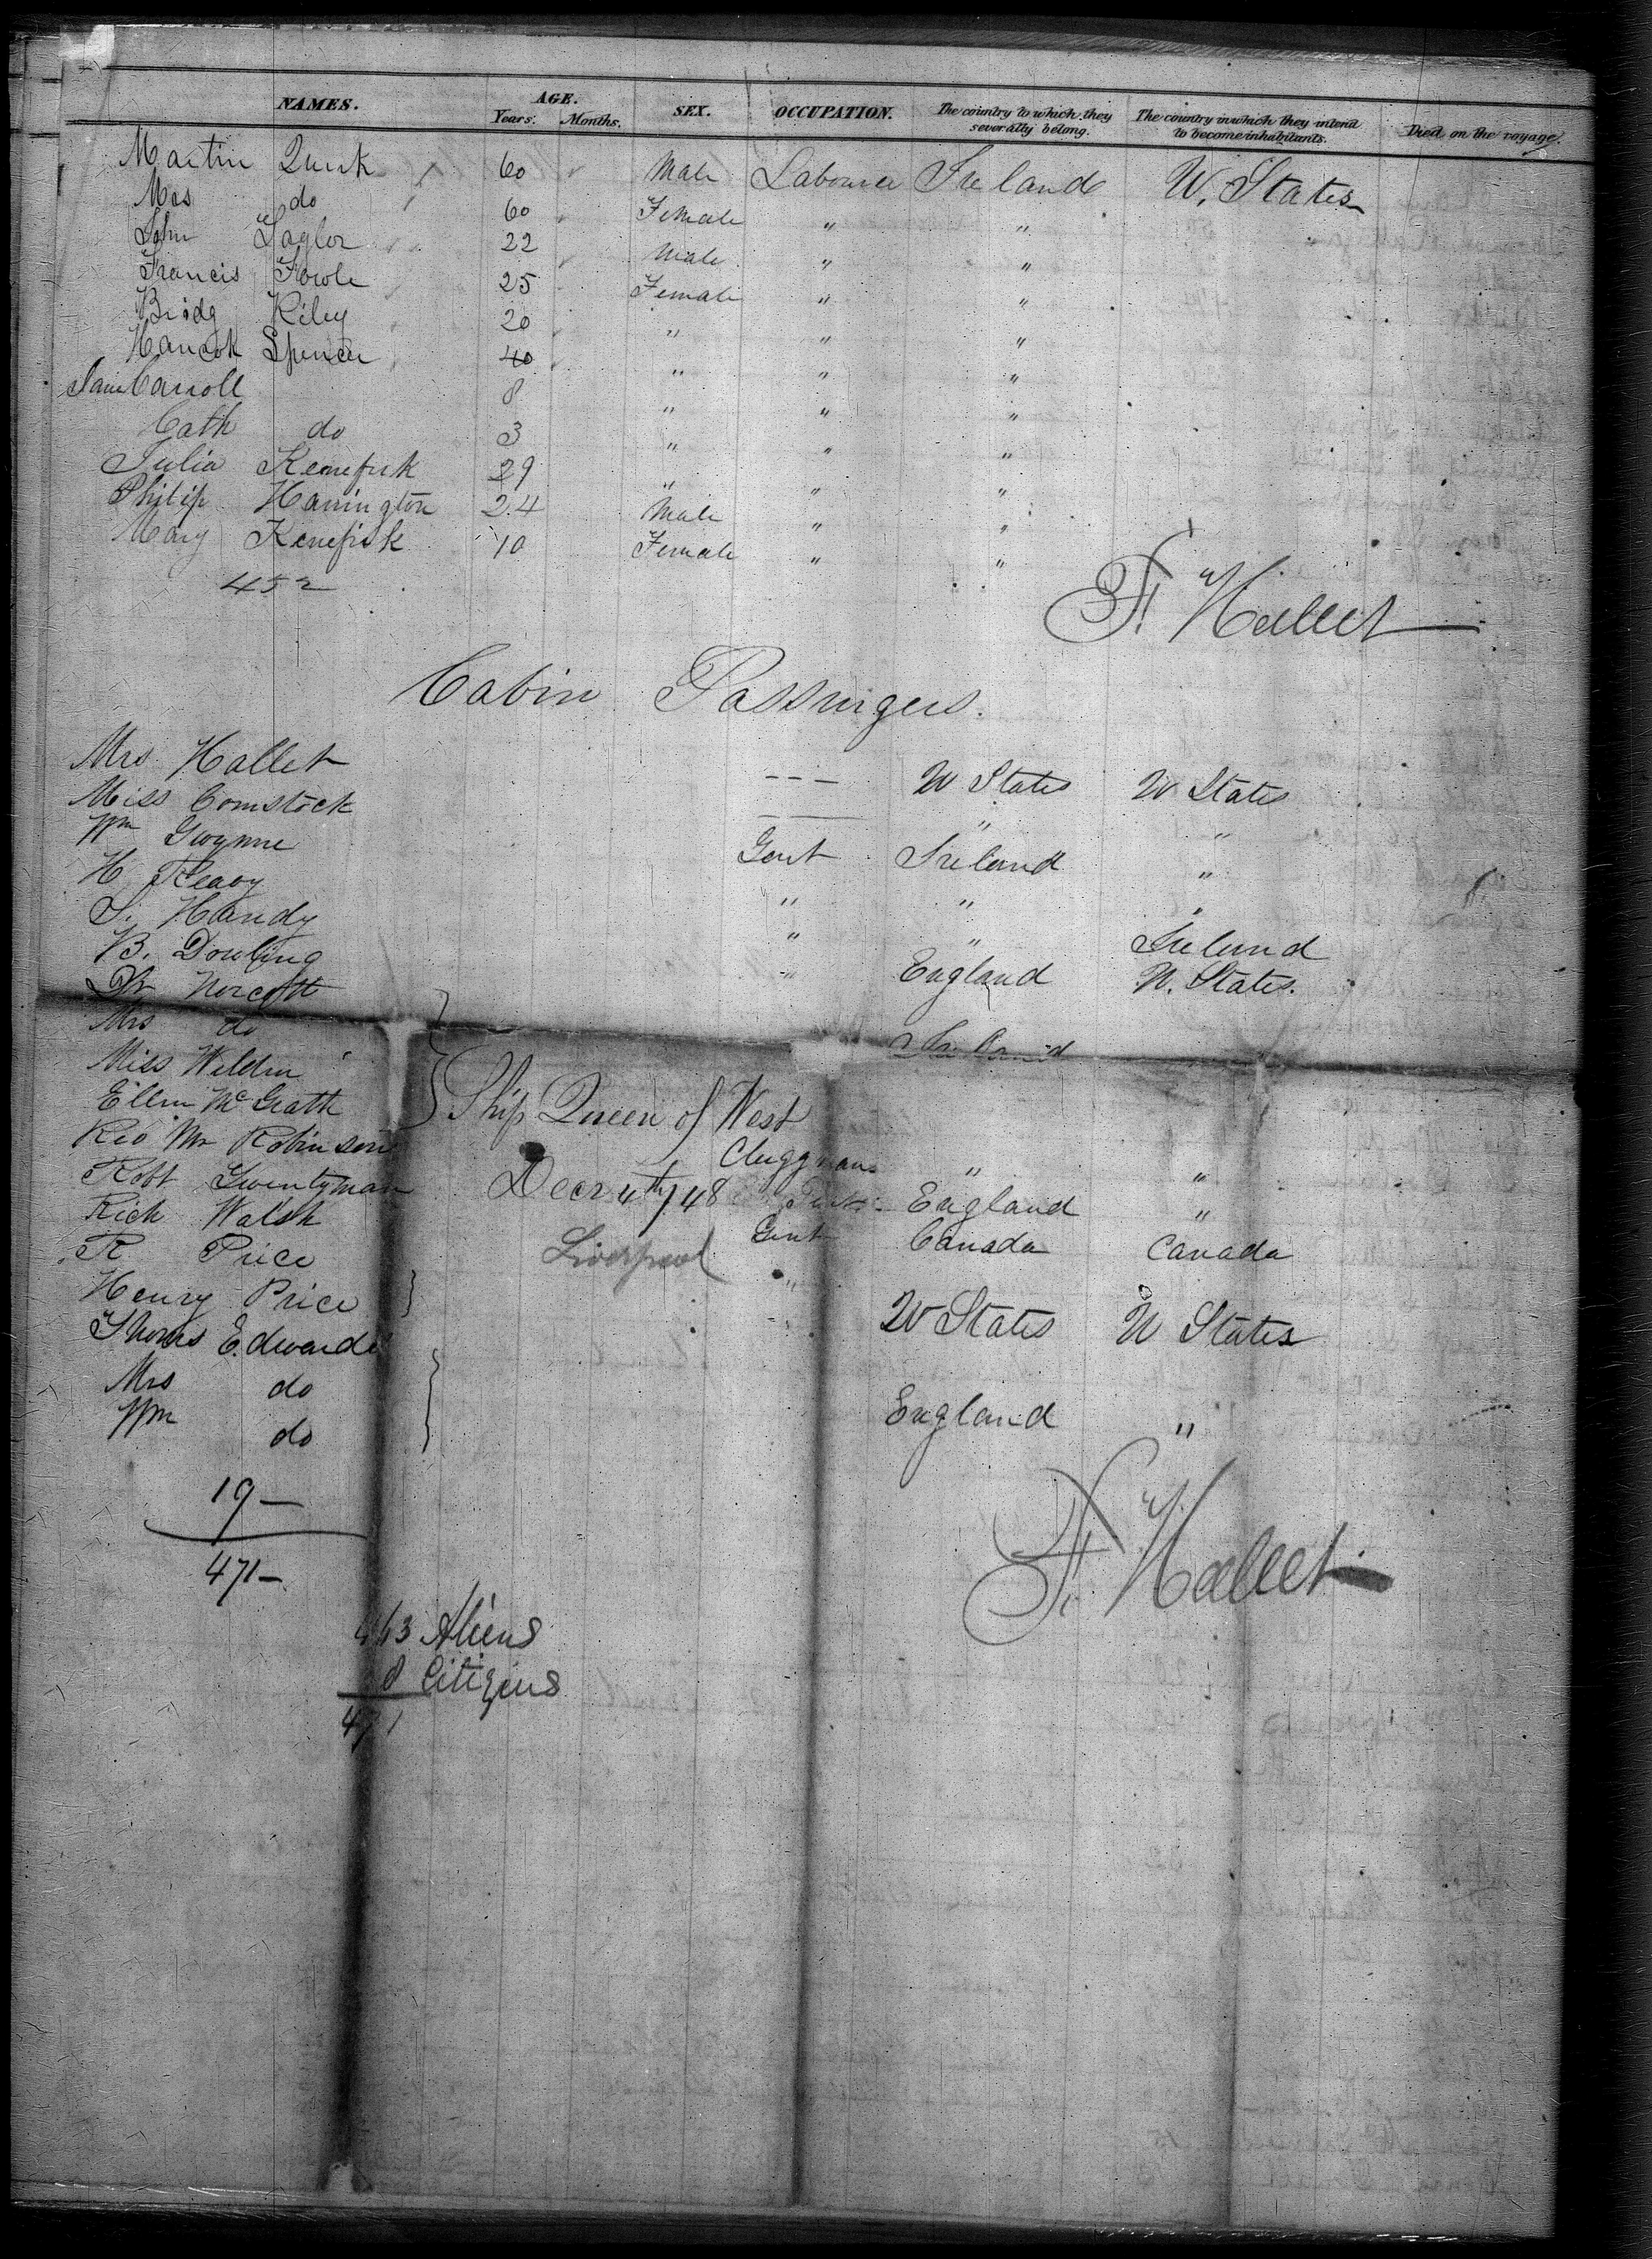 NAMES. AGE. SEX. OCCUPATION. The country to which they severally belong. The country in which they intend to become inhabitants. Died on the voyage.
Years. Months.
Martin Quirk 60 Male Labourer Ireland U. States
Mrs do 60 Female " "
John Taylor 22 Male " "
Francis Fowle 25 Female " "
Bridg Riley 20 " " "
Hancok Spencer 40 " " "
Jane Carroll 8 " " "
Cath do 3 " " "
Julia Kenefick 29 " " "
Philip Harrington 24 Male " "
Mary Kenefick 10 Female " "
452
F. Hallet
Cabin Passengers.
Mrs Hallet --- U States U States
Miss Comstock " "
Wm Gwynne Gent Ireland "
H. Reavy " " "
S. Handy " " Ireland
B. Dowling " England U. States.
Dr Norcott
Mrs do Ireland
Miss Weldon
Ellen McGrath
Ship Queen of West
Rev Mr Robinson Clergyman " "
Robt Twentyman England "
Decr 4th / 48
Rich Walsh Gent Canada Canada
R Price "
Liverpool
Henry Price U States U States
Thomas Edwards
Mrs do England "
Wm do
19
471
F. Hallet
463 Aliens
8 Citizens
471